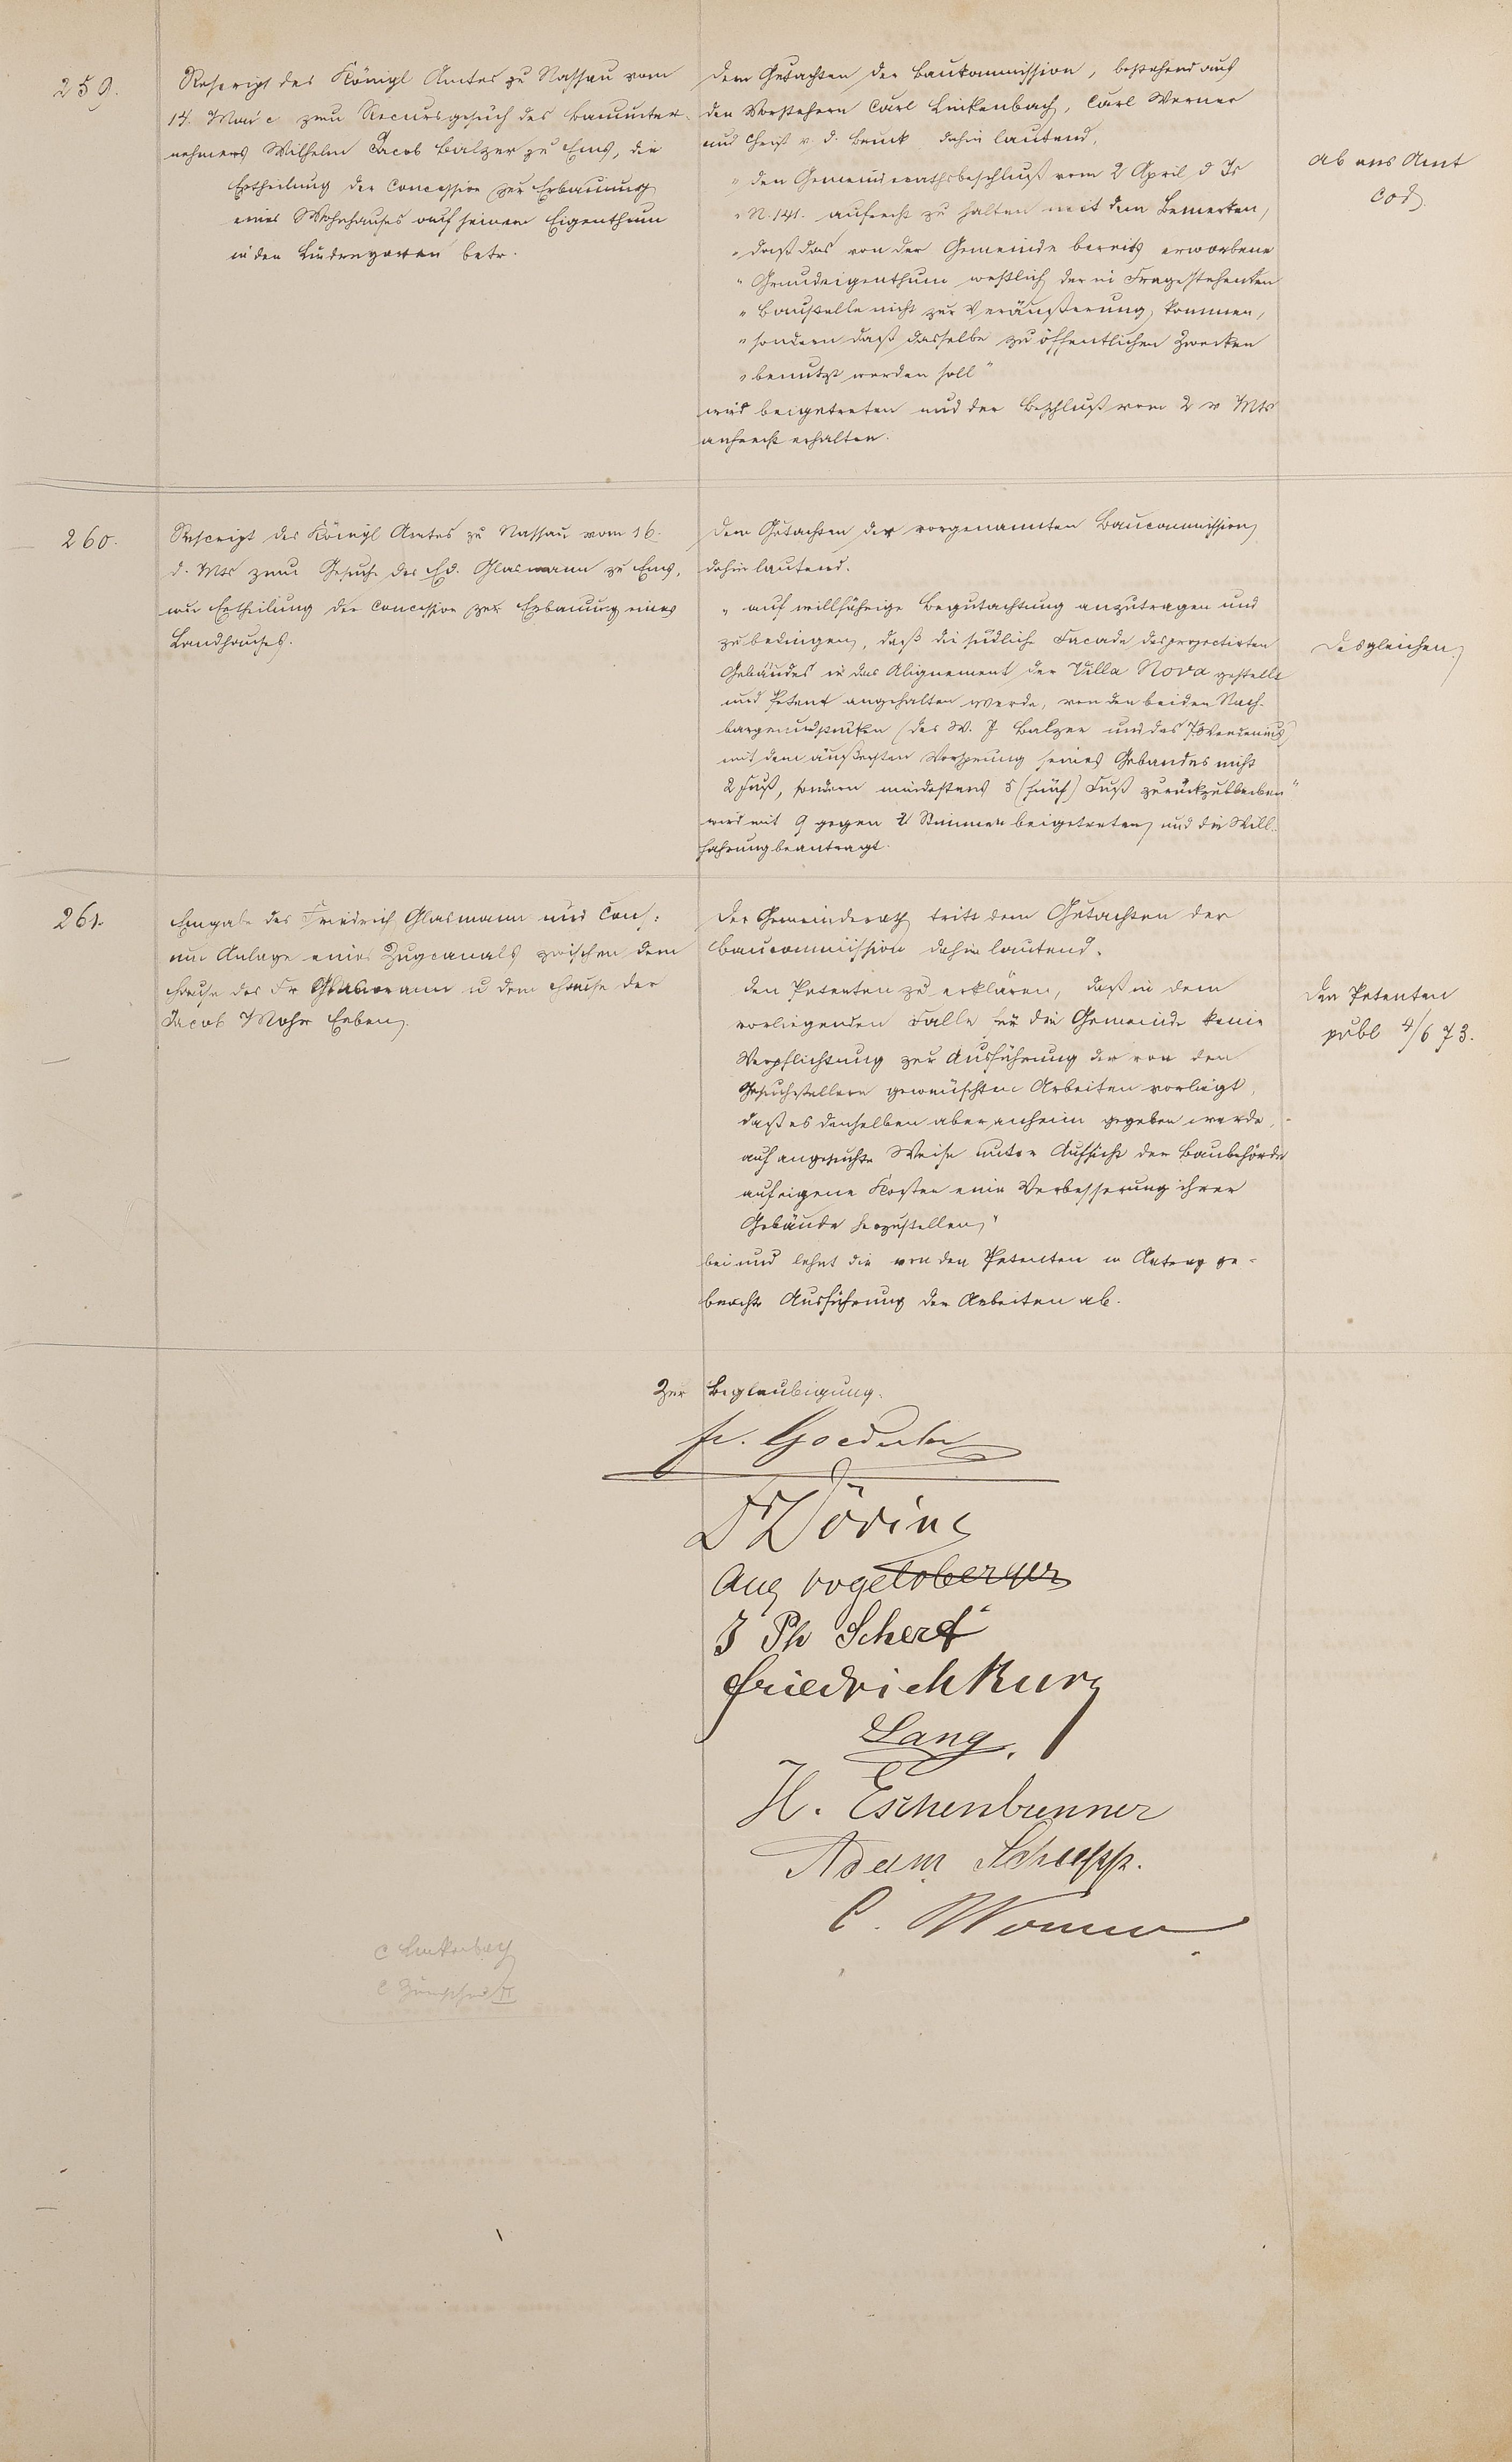 259.
Rescript des Königl Amtes zu Nassau vom
14. Mai c zum Recursgesuch des Bauunter-
nehmers Wilhelm Jacob Balzer zu Ems, die
Ertheilung der Concession zur Erbauung
eines Wohnhauses auf seinem Eigenthum
in den betr.
Dem Gutachten der Baukommission, bestehend aus
den Vorstehern Carl Linkenbach, Carl Werner
und Christ v. d. dahin lautend,
" den Gemeinderathsbeschluß vom 2 April d Js
" N. 141. aufrecht zu halten mit dem Bemerken,
" daß das von der Gemeinde bereits erworbene
" Grundeigenthum westlich der in Frage stehenden
" Baustelle nicht zur Veräußerung kommen,
" sondern daß dasselbe zu öffentlichen Zwecken
" benutzt werden soll"
wird beigetreten und der Beschluß vom 2 v Mts
aufrecht erhalten.
Ab ans Amt
eod.
260.
Rescript des Königl Amtes zu Nassau vom 16.
d. Mts zum Gesuche des Fd. Glasmann zu Ems,
um Ertheilung der Concession zur Erbauung eines
Landhauses.
Dem Gutachten der vorgenannten Baucommission
dahin lautend.
" auf willfährige Begutachtung anzutragen und
zu bedingen, daß die südliche Facade des projectirten
Gebäudes in das Alignement der Villa Nova gestellt
und Petent angehalten werde, von den beiden Nach-
bargrundstücken (des W. J. Balzer und des
mit dem äußersten Vorsprung seines Gebäudes nicht
2 Fuß, sondern mindestens 5 (fünf) Fuß zurückzubleiben"
wird mit 9 gegen 2 Stimmen beigetreten und die Will-
fahrung beantragt.
Desgleichen
261.
Eingabe des Friedrich Glasmann und Cons:
um Anlage eines Zugcanals zwischen dem
Hause des Fr Glasmann u dem Hause der
Jacob Mohr Erben.
Der Gemeinderath tritt dem Gutachten der
Baucommission dahin lautend.
den Petenten zu erklären, daß in dem
vorliegenden Falle für die Gemeinde keine
Verpflichtung zur Ausführung der von den
Gesuchstellern gewünschten Arbeiten vorliegt,
daß es denselben aber anheim gegeben werde,
auf angesuchte Weise unter Aufsicht der Baubehörde
auf eigene Kosten eine Verbesserung ihrer
Gebäude herzustellen"
bei und lehnt die von den Petenten in Antrag ge-
brachte Ausführung der Arbeiten ab.
Den Petenten
publ 4/6 73.
Zur Beglaubigung.
Fr. Goedecke
Dr Döring
Aug Vogelsberger
J Ph Scherf
Friedrich Kurz
Lang.
H. Eschenbrenner
Adam Schupp.
C. Werner
C Linkenbach
C II